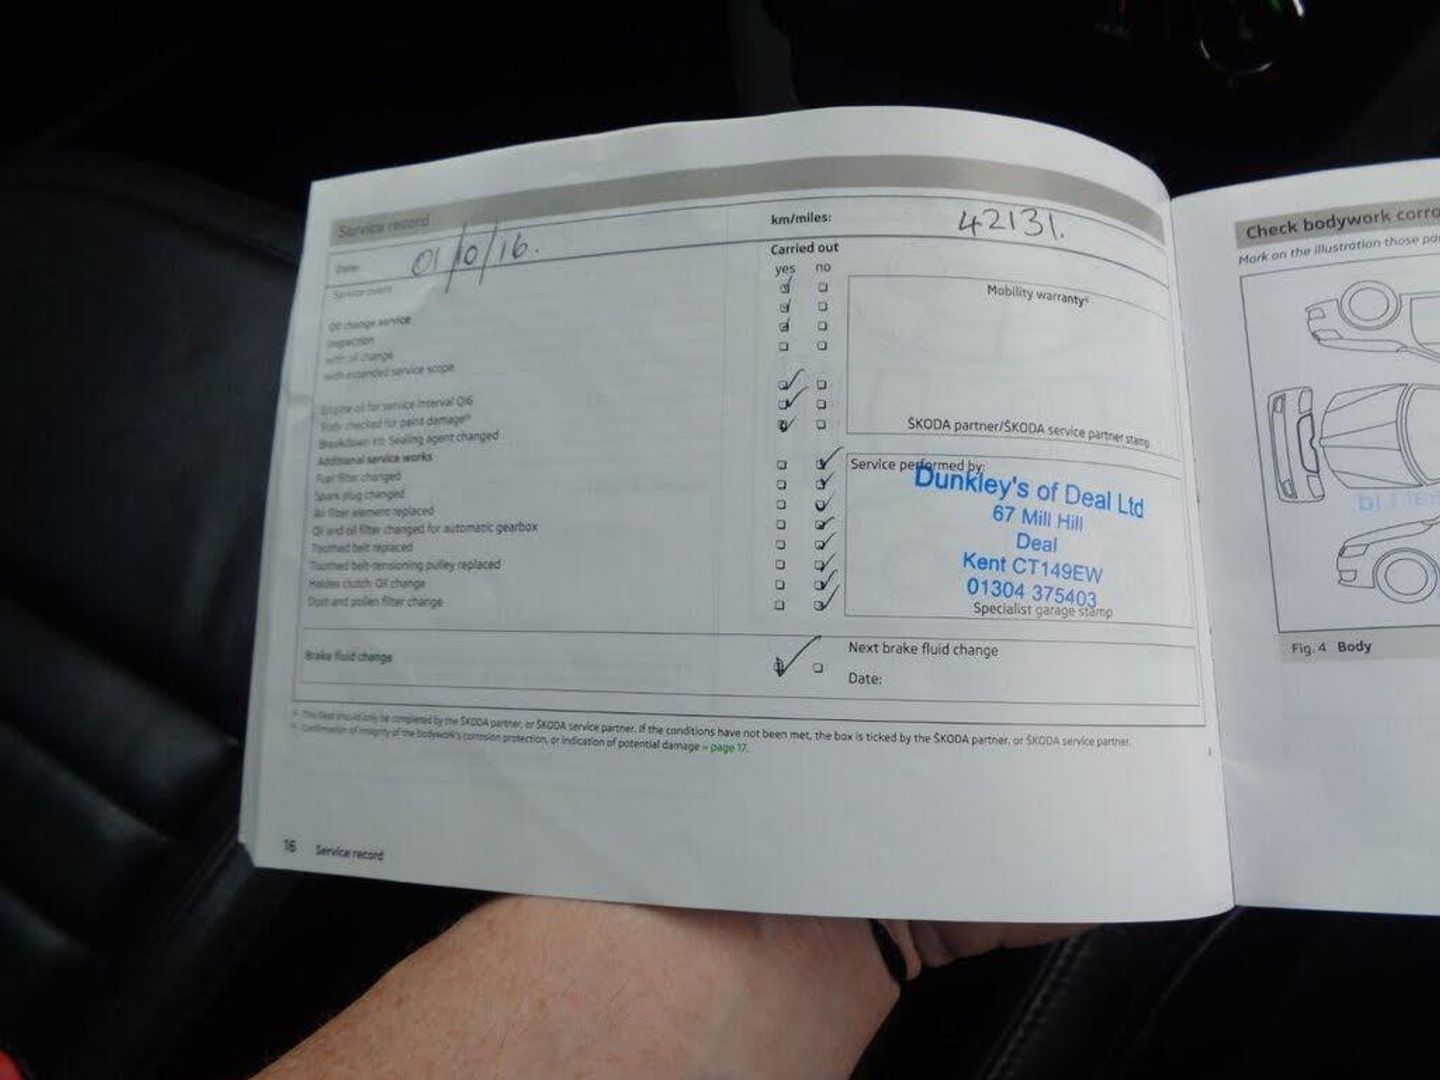 Service record
Date: 01/10/16.
km/miles: 42131.
Service event
Carried out
yes no
Oil change service
Inspection
with oil change
with extended service scope
Engine oil for service interval QI6
Body checked for paint damage
Breakdown kit: Sealing agent changed
Additional service works
Fuel filter changed
Spark plug changed
Air filter element replaced
Oil and oil filter changed for automatic gearbox
Toothed belt replaced
Toothed belt-tensioning pulley replaced
Haldex clutch Oil change
Dust and pollen filter change
Mobility warranty
ŠKODA partner/ŠKODA service partner stamp
Service performed by:
Dunkley's of Deal Ltd
67 Mill Hill
Deal
Kent CT149EW
01304 375403
Specialist garage stamp
Brake fluid change
Next brake fluid change
Date:
This field should only be completed by the ŠKODA partner, or ŠKODA service partner. If the conditions have not been met, the box is ticked by the ŠKODA partner, or ŠKODA service partner.
Confirmation of integrity of the bodywork's corrosion protection, or indication of potential damage » page 17.
16 Service record
Check bodywork corro
Mark on the illustration those pa
Fig. 4 Body